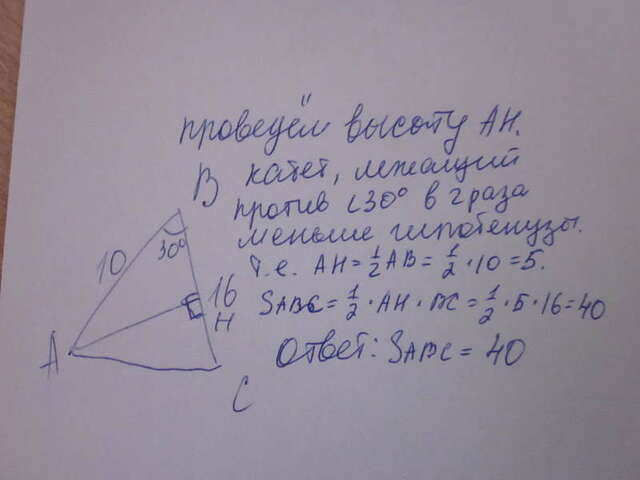 проведём высоту AH.
B катет, лежащий
против ∠30° в 2 раза
меньше гипотенузы.
10 30° т.е. AH = 1/2 AB = 1/2 · 10 = 5.
16 SABC = 1/2 · AH · BC = 1/2 · 5 · 16 = 40
H
A Ответ: SABC = 40
C